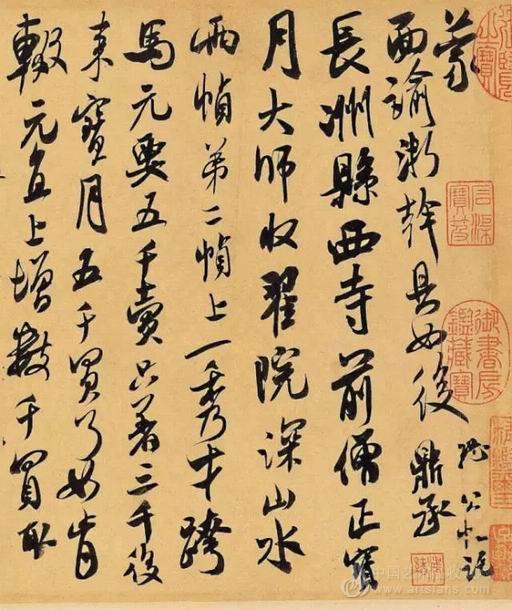 蒙
面諭浙幹具如後
鼎承
長洲縣西寺前僧正寶
月大師收翟院深山水
兩幀第二幀上一秀才跨
馬元要五千賣只著三千後
來寶月五千買了如肯
輟元直上增數千買取
御書房鑑藏寶
www.artsfans.com